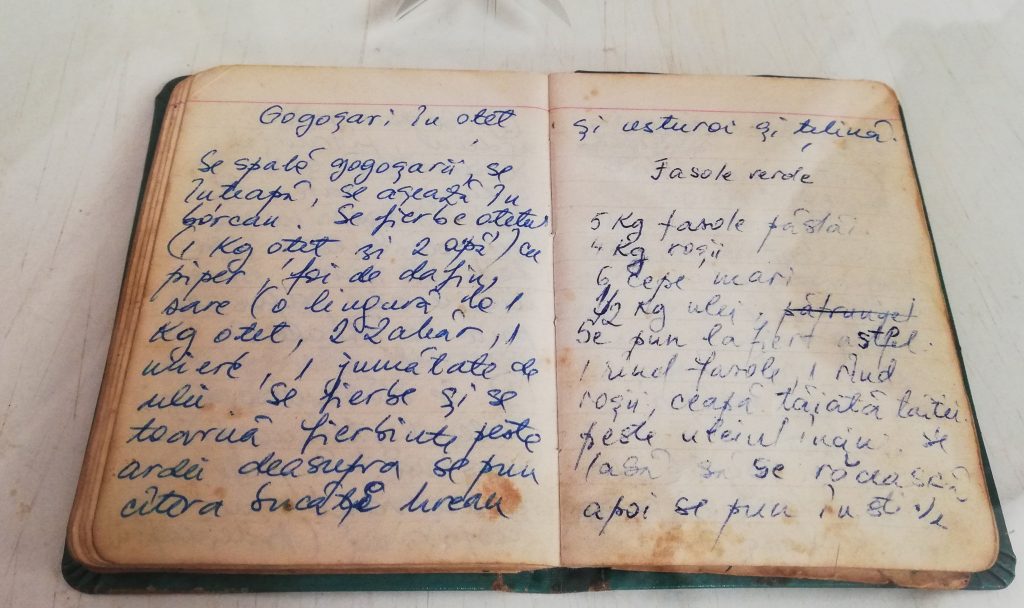 Gogoșari în otet
Se spală gogoșarii, se
înteapă, se așează în
borcan. Se fierbe otetul
(1 Kg otet și 2 apă) cu
piper, foi de dafin,
sare (o lingură la 1
Kg otet, 2-2 zahăr, 1
miere, 1 jumătate de
ulei. Se fierbe și se
toarnă fierbinte peste
ardei deasupra se pun
cîtova bucăți hrean
și usturoi și țelină.
Fasole verde
5 Kg fasole păstăi.
4 Kg roșii
6 cepe mari
1/2 Kg ulei, pătrunjel
Se pun la fiert astfel.
1 rind fasole, 1 rînd
roșii, ceapă tăiată
peste uleiul se
lasă să se
apoi se pun în sticle